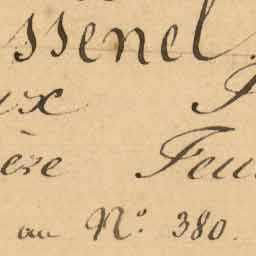 ssenel
ux
ère Feu
au No. 380.